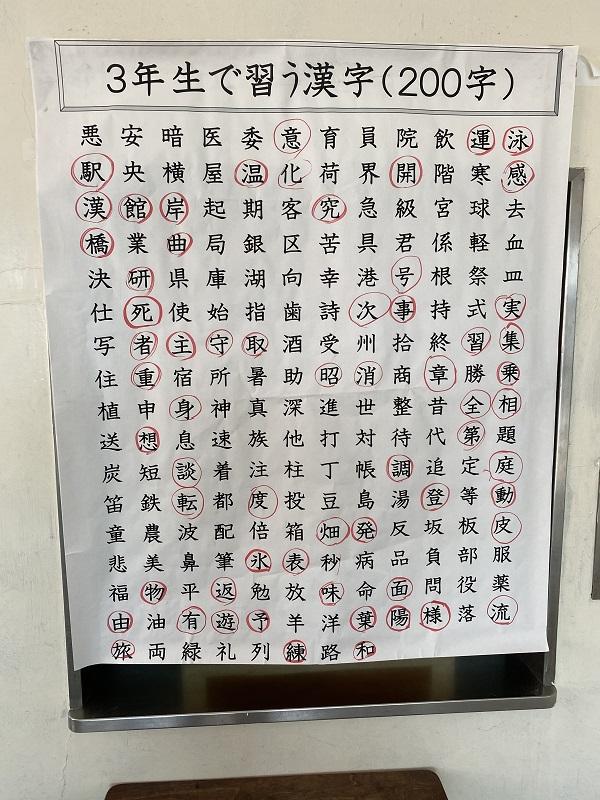 3年生で習う漢字(200字)
悪安暗医委意育員院飲運泳
駅央横屋温化荷界開階寒感
漢館岸起期客究急級宮球去
橋業曲局銀区苦具君係軽血
決研県庫湖向幸港号根祭皿
仕死使始指歯詩次事持式実
写者主守取酒受州拾終習集
住重宿所暑助昭消商章勝乗
植申身神真深進世整昔全相
送想息速族他打対待代第題
炭短談着注柱丁帳調追定庭
笛鉄転都度投豆島湯登等動
童農波配倍箱畑発反坂板皮
悲美鼻筆氷表秒病品負部服
福物平返勉放味命面問役薬
由油有遊予羊洋葉陽様落流
旅両緑礼列練路和